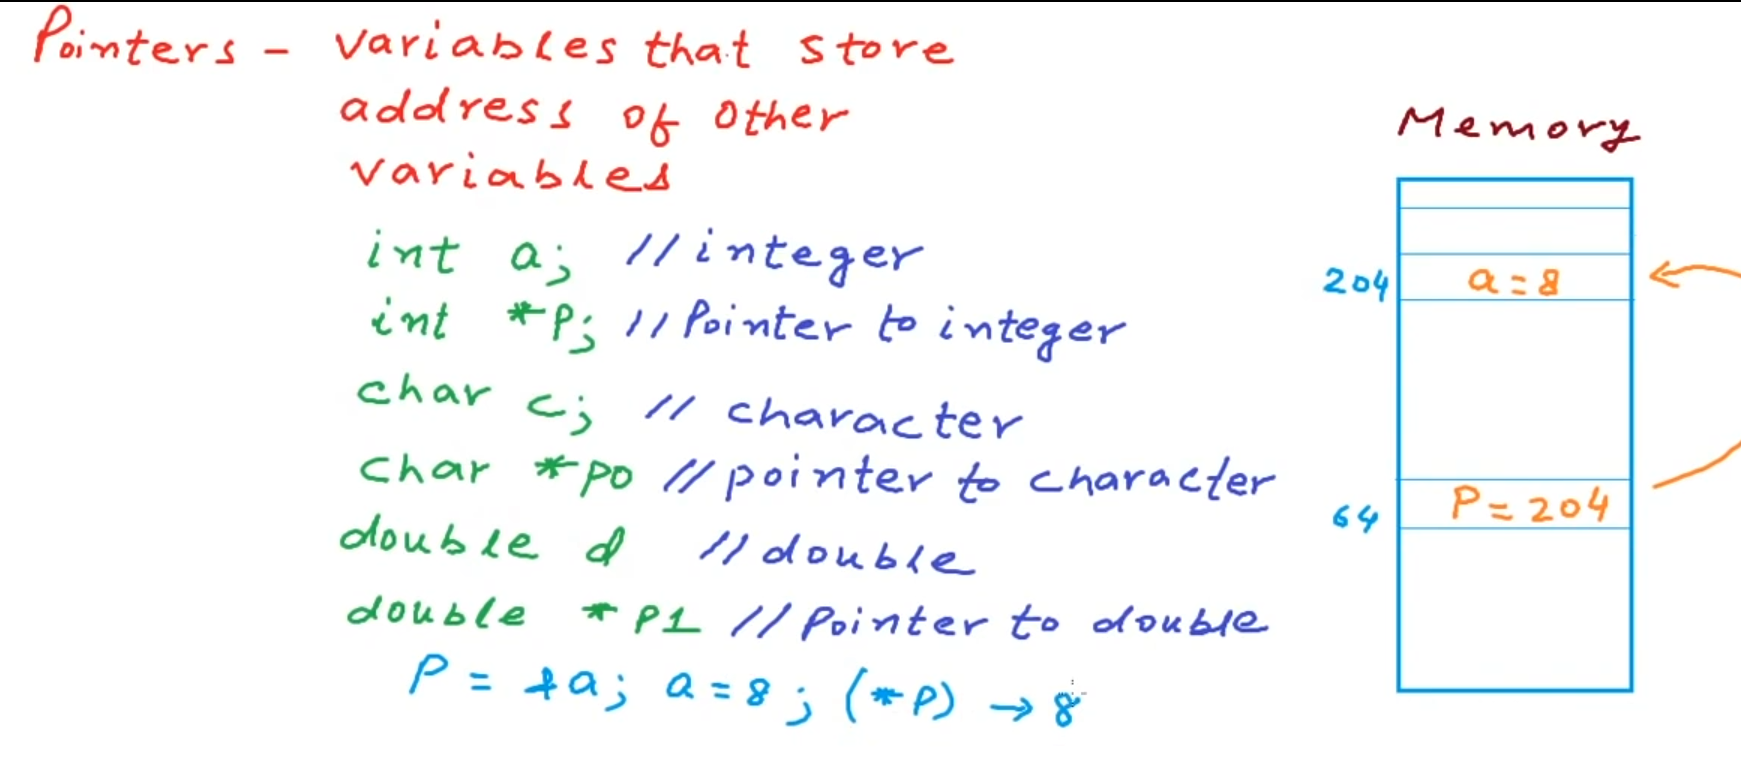 Pointers - variables that store
address of other
variables
int a; //integer
int *P; //Pointer to integer
char c; // character
char *po //pointer to character
double d //double
double *P1 //Pointer to double
P = &a; a=8; (*P) → 8
Memory
204 a=8
64 P=204